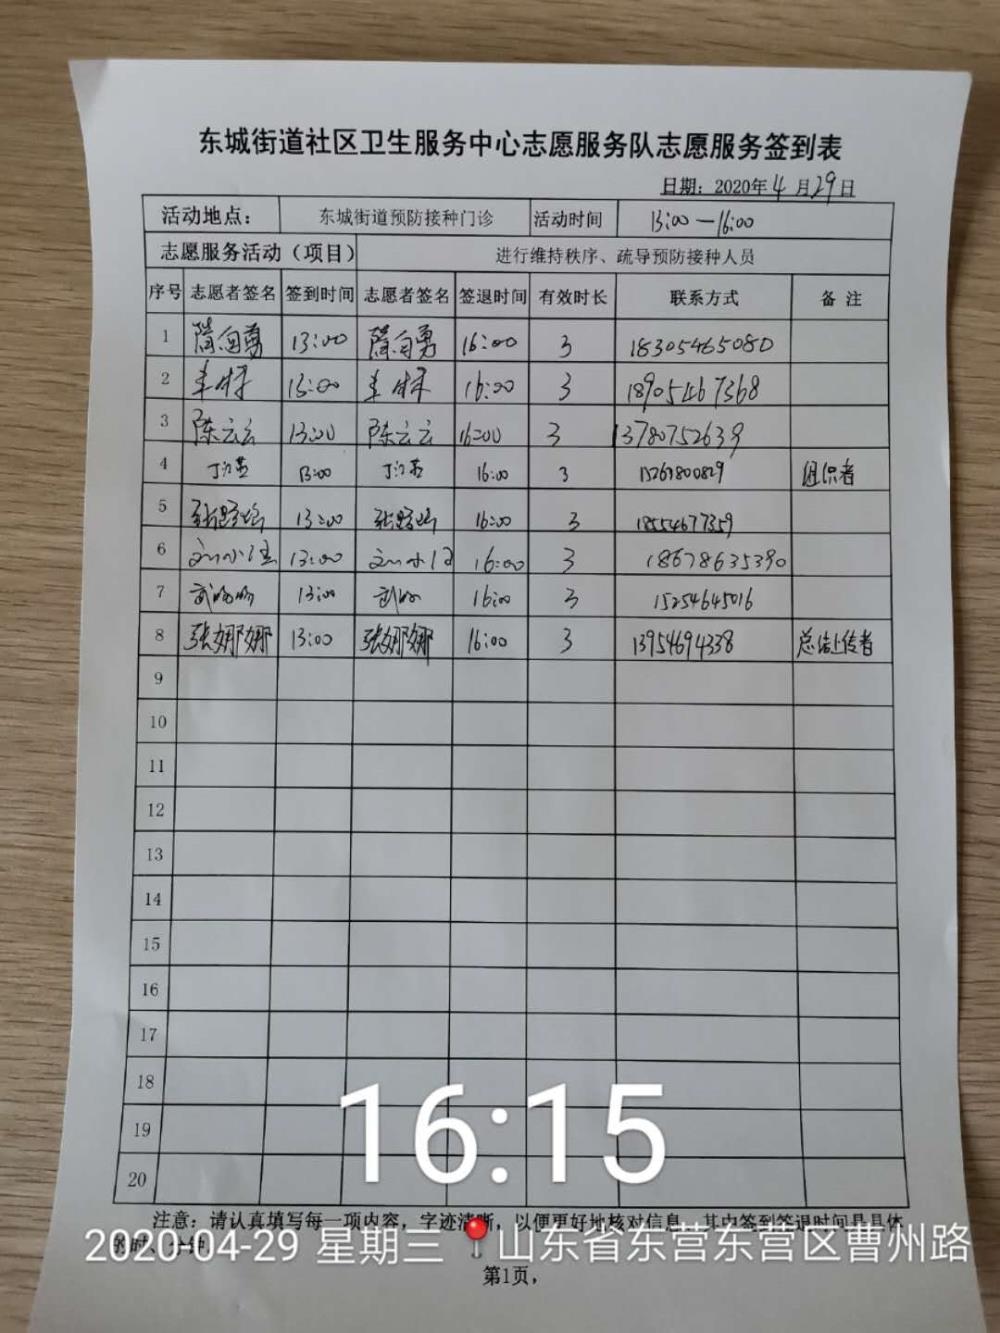 东城街道社区卫生服务中心志愿服务队志愿服务签到表
日期：2020年4月29日
活动地点： 东城街道预防接种门诊 活动时间 13:00—16:00
志愿服务活动（项目） 进行维持秩序、疏导预防接种人员
序号 志愿者签名 签到时间 志愿者签名 签退时间 有效时长 联系方式 备 注
1 13:00 16:00 3 18305465080
2 13:00 16:00 3 18905467368
3 陈云云 13:00 陈云云 16:00 3 13780752639
4 13:00 16:00 3 15267800829 组织者
5 13:00 16:00 3 18554677359
6 13:00 16:00 3 18678635390
7 13:00 16:00 3 15254645016
8 张娜娜 13:00 张娜娜 16:00 3 13954694338 总结上传者
9
10
11
12
13
14
15
16
17
18
19
20
16:15
注意：请认真填写每一项内容，字迹清晰，以便更好地核对信息，其中签到签退时间是具体
2020-04-29 星期三 山东省东营东营区曹州路
第1页，